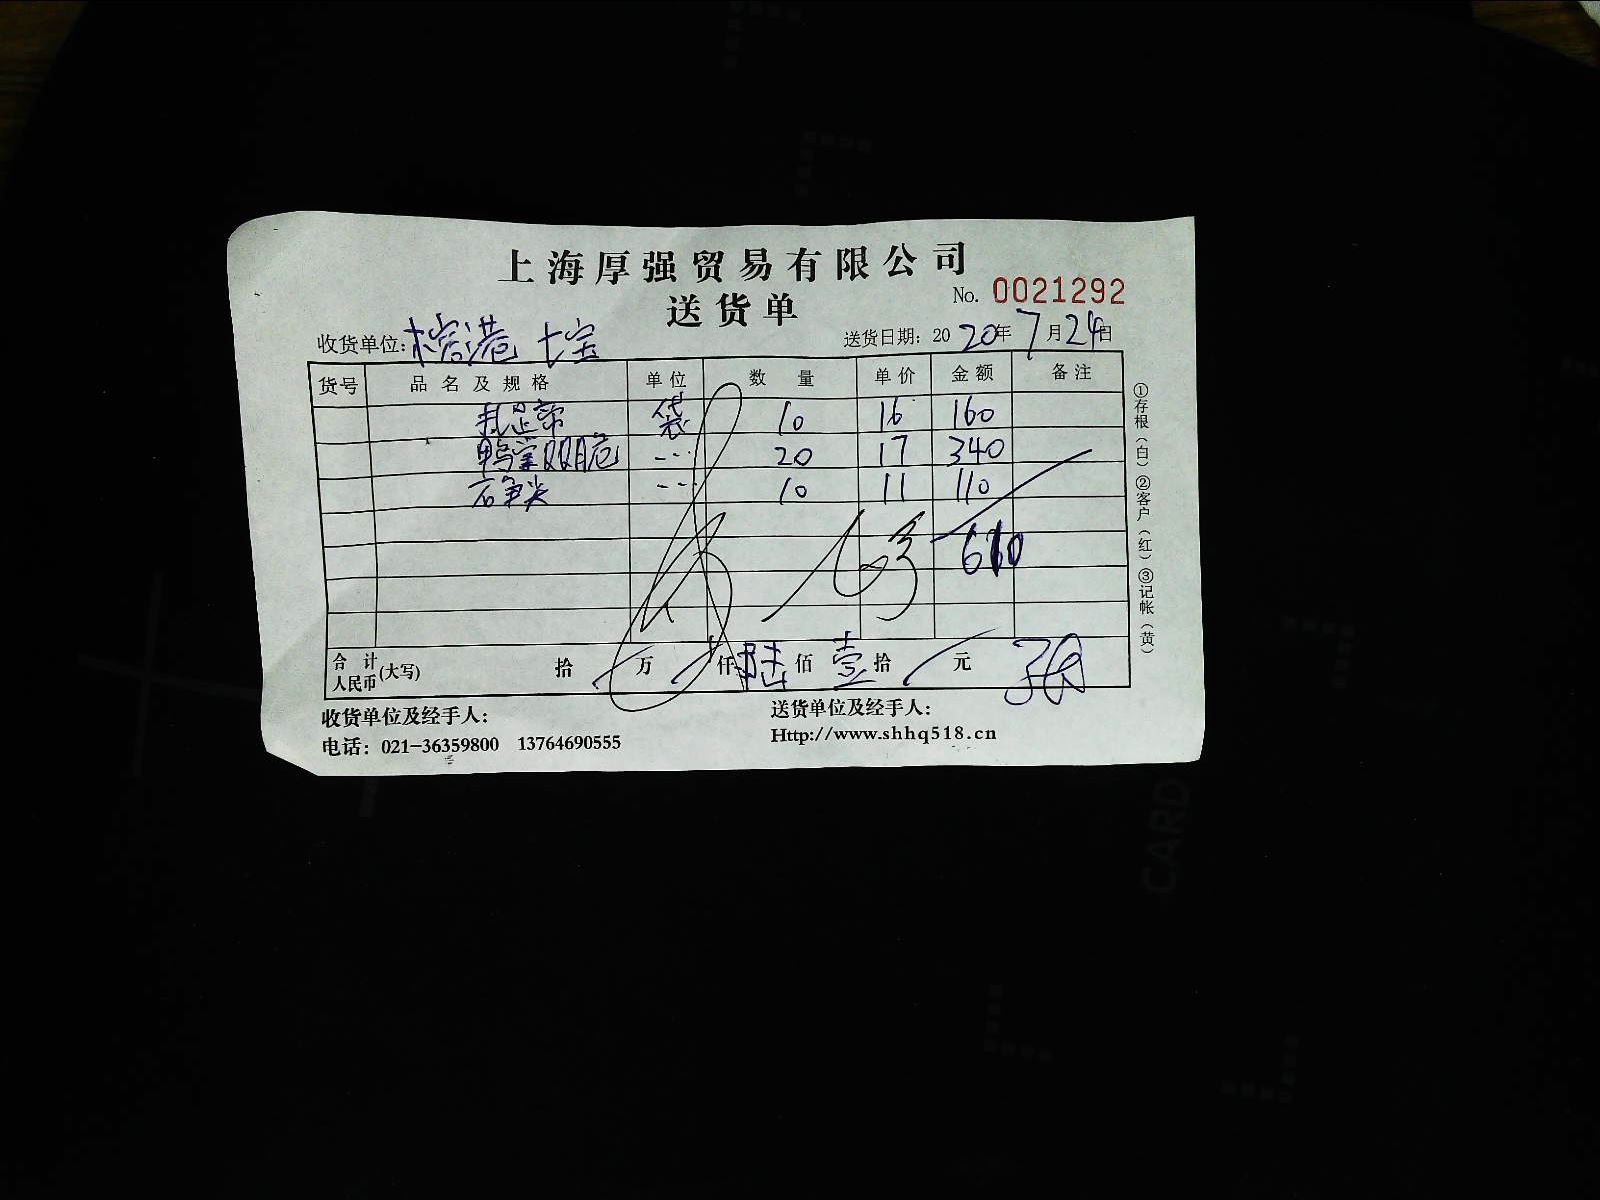 上海厚强贸易有限公司
送货单
No. 0021292
收货单位: 榕港 七宝
送货日期: 2020年7月24日
货号 品名及规格 单位 数量 单价 金额 备注
袋 10 16 160
鸭掌双脆 --- 20 17 340
石笋尖 --- 10 11 110
610
合计人民币(大写) 拾 万 仟陆佰壹拾 元
收货单位及经手人:
送货单位及经手人:
电话: 021-36359800 13764690555
Http://www.shhq518.cn
①存根(白)②客户(红)③记帐(黄)
CARD